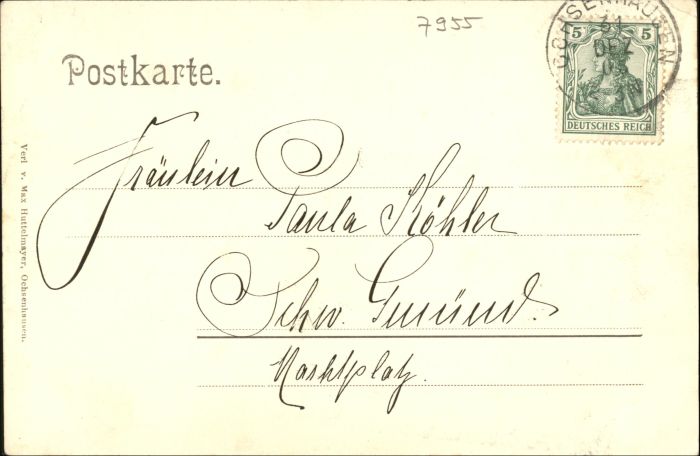 7955
OCHSENHAUSEN
31
DEZ
5 5
DEUTSCHES REICH
Postkarte.
Fräulein
Paula Köhler
Schw. Gmünd.
Marktplatz.
Verl v. Max Huttelmayer, Ochsenhausen.